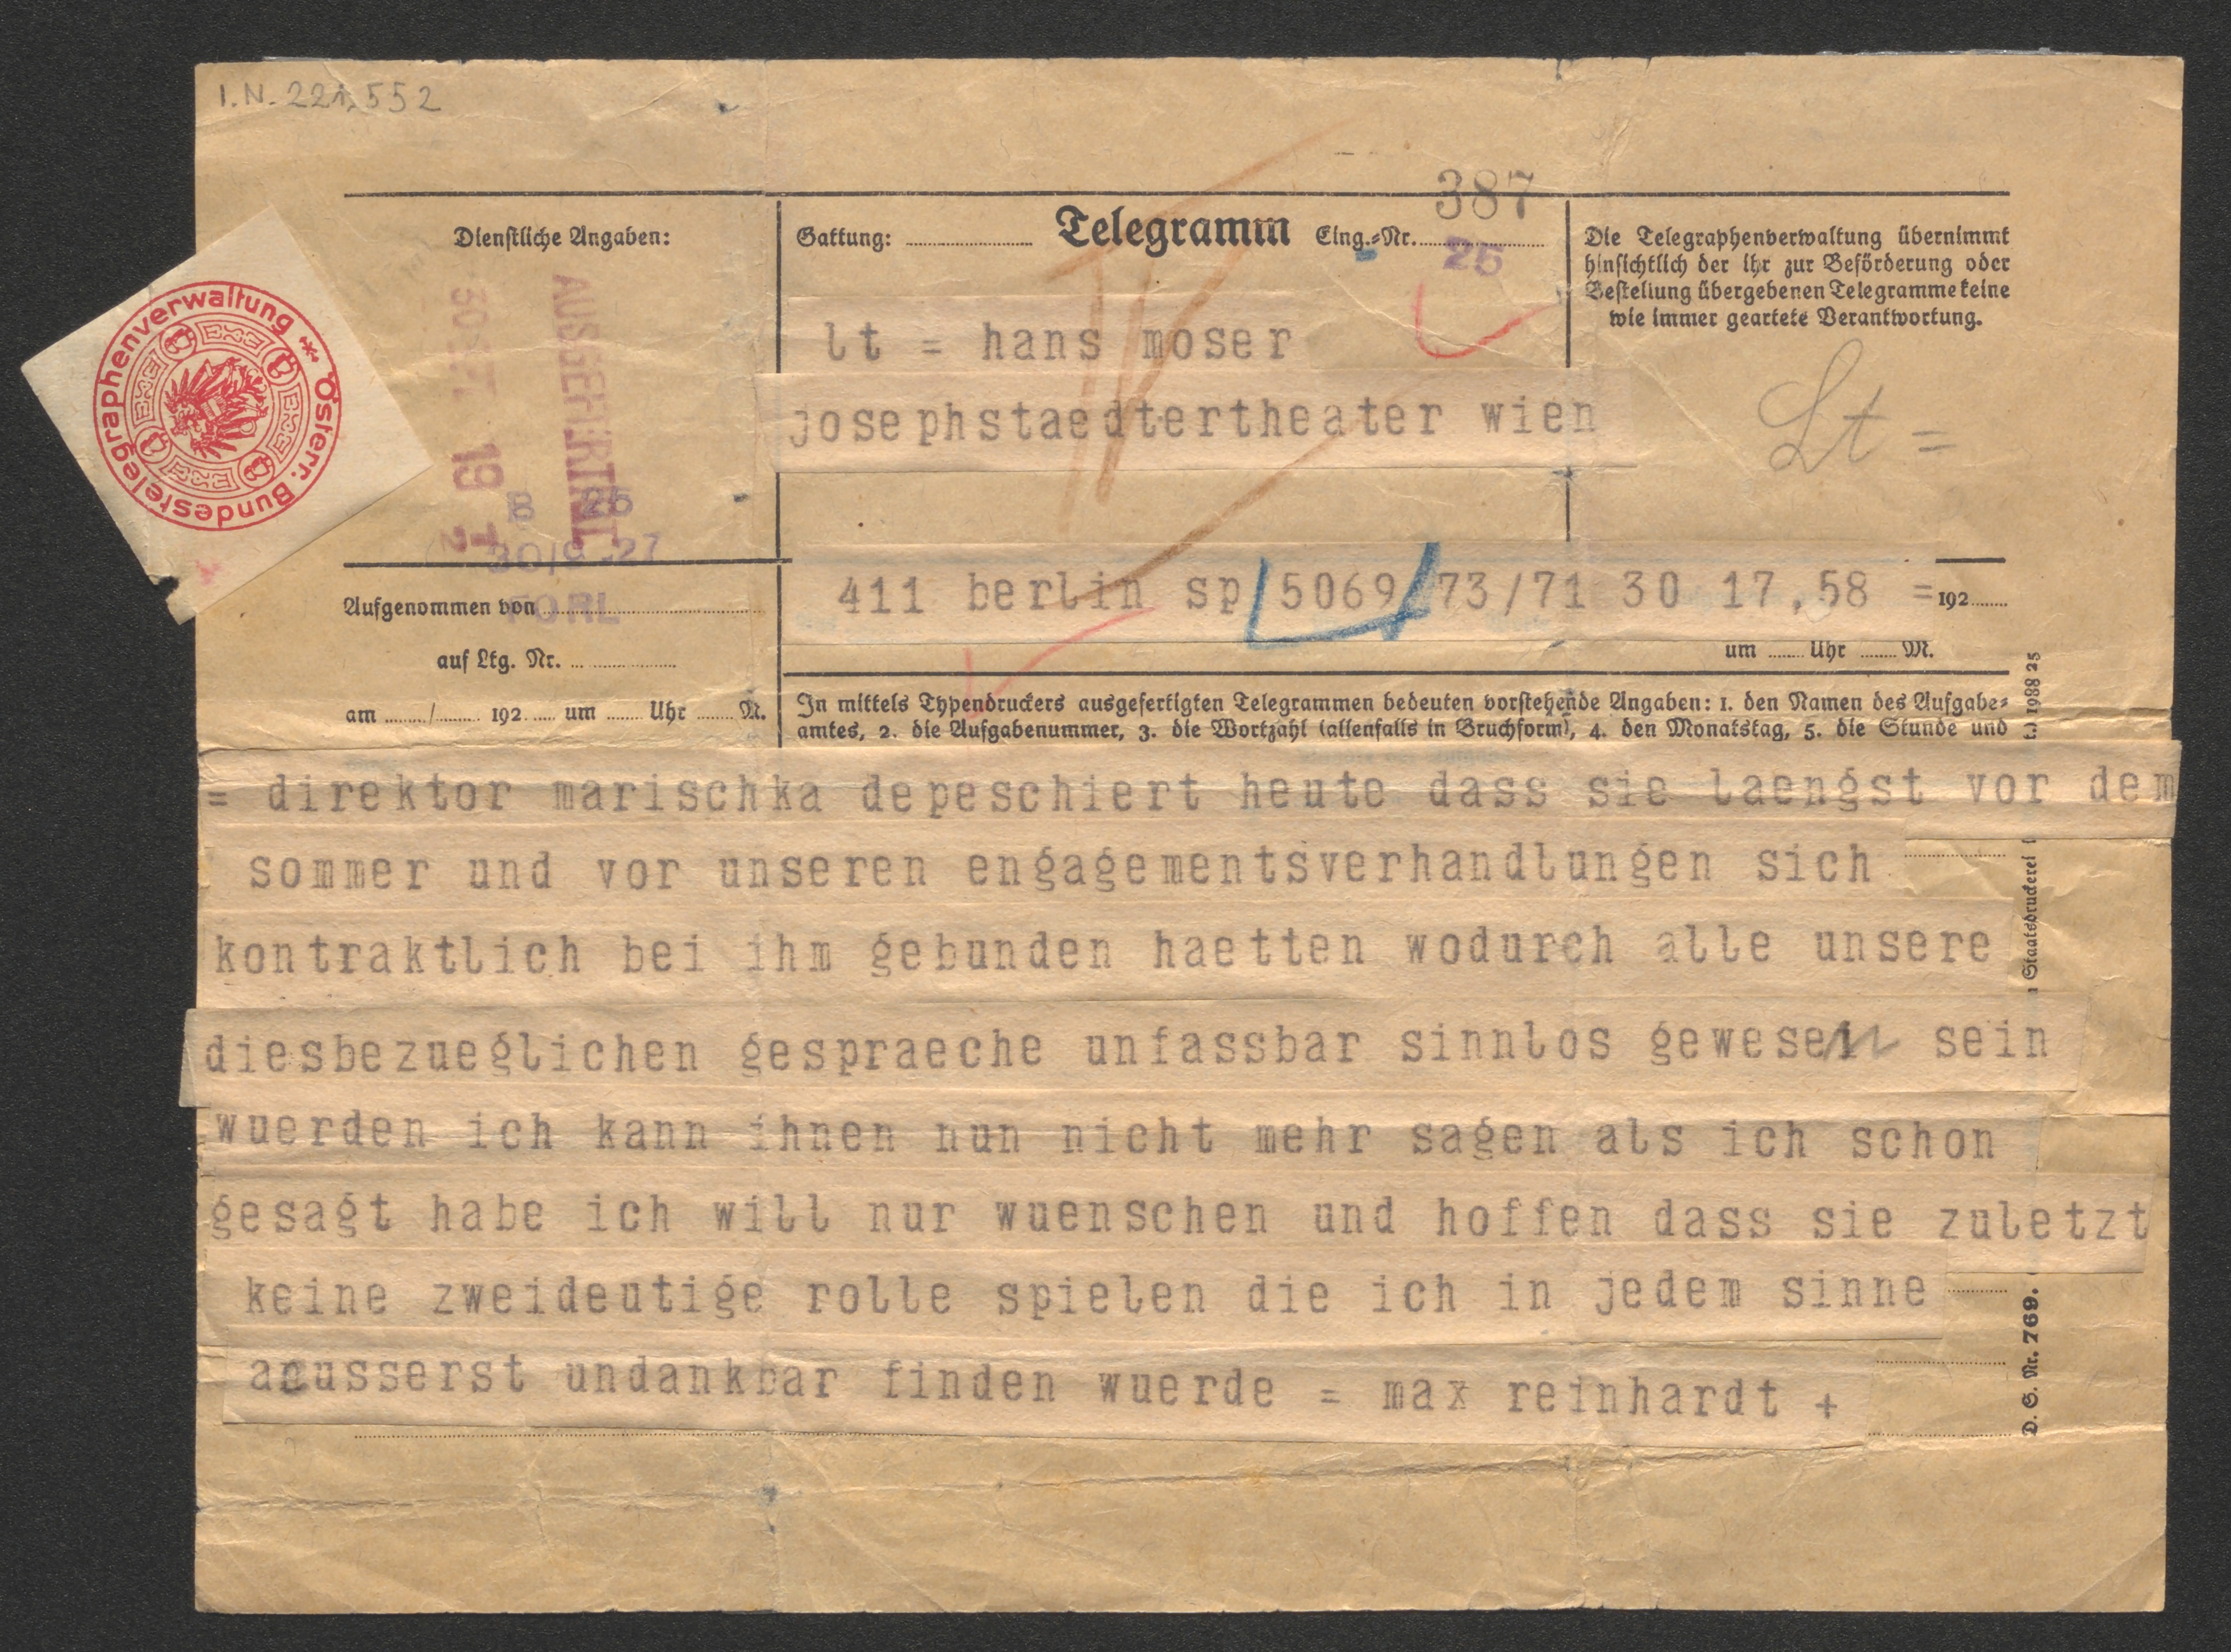 I.N. 221,552
387
Dienstliche Angaben:
Gattung: Telegramm Eing.=Nr.
25
Die Telegraphenverwaltung übernimmt
hinsichtlich der ihr zur Beförderung oder
Bestellung übergebenen Telegramme keine
wie immer geartete Verantwortung.
* Österr. Bundestelegraphenverwaltung
lt = hans moser
josephstaedtertheater wien
Lt =
B 26
30/9 -27
FORL
411 berlin sp 5069 73/71 30 17,58 = 192
Aufgenommen von
auf Ltg. Nr.
um Uhr M.
am / 192 um Uhr M.
In mittels Typendruckers ausgefertigten Telegrammen bedeuten vorstehende Angaben: 1. den Namen des Aufgabe=
amtes, 2. die Aufgabenummer, 3. die Wortzahl (allenfalls in Bruchform), 4. den Monatstag, 5. die Stunde und
= direktor marischka depeschiert heute dass sie laengst vor dem
sommer und vor unseren engagementsverhandlungen sich
kontraktlich bei ihm gebunden haetten wodurch alle unsere
diesbezueglichen gespraeche unfassbar sinnlos gewesen sein
wuerden ich kann ihnen nun nicht mehr sagen als ich schon
gesagt habe ich will nur wuenschen und hoffen dass sie zuletzt
keine zweideutige rolle spielen die ich in jedem sinne
aeusserst undankbar finden wuerde = max reinhardt +
D. S. Nr. 769.
Staatsdruckerei
1988 25